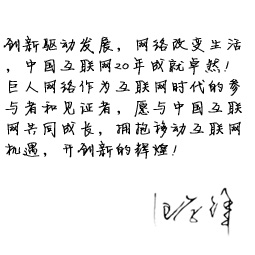 创新驱动发展，网络改变生活
，中国互联网20年成就卓然！
巨人网络作为互联网时代的参
与者和见证者，愿与中国互联
网共同成长，拥抱移动互联网
机遇，开创新的辉煌！